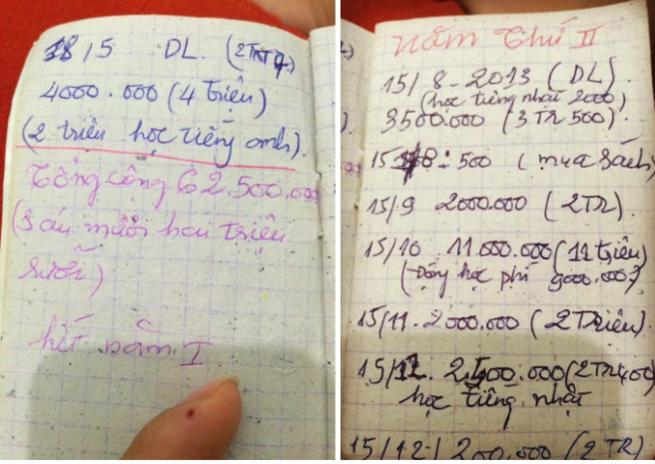 18/5 DL.
4000.000 (4 triệu)
(2 triệu học tiếng anh).
Tổng cộng 62.500.000
(Sáu mươi hai triệu
rưỡi)
hết năm I
Năm thứ II
15/8-2013 (DL).
(học tiếng nhật 2000)
3500.000 (3TR 500).
15/8: 500 (mua sách)
15/9 2000.000 (2TR).
15/10 11.000.000 (11 triệu)
(Đóng học phí 9000.000)
15/11. 2000.000 (2Triệu).
15/12. 2400.000 (2TR400)
học tiếng nhật
15/12 200.000 (2TR)